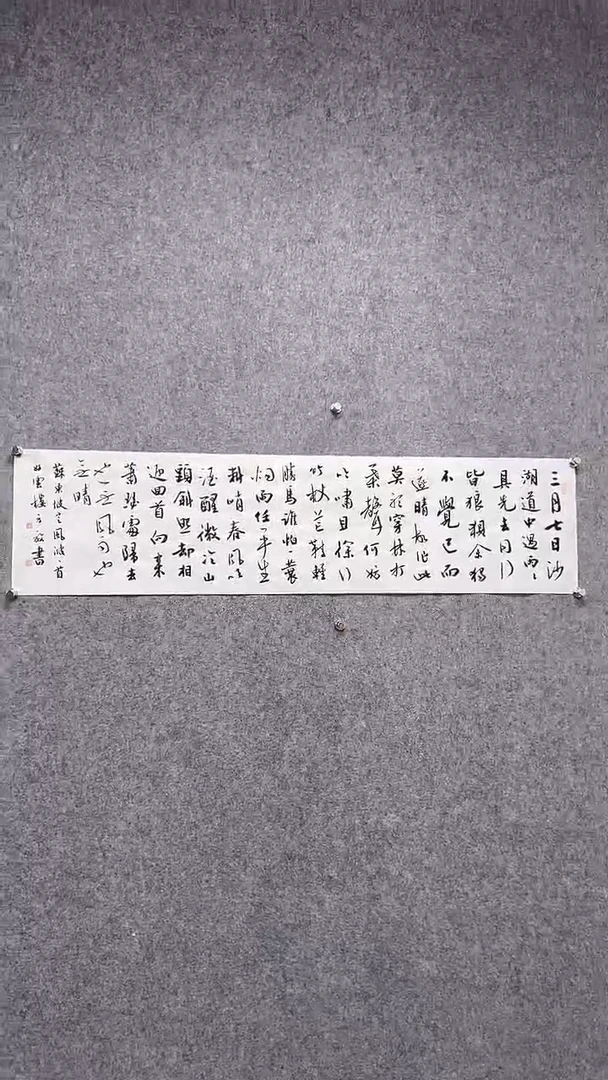 三月七日沙
湖道中遇雨雨
具先去同行
皆狼狽余獨
不覺已而
遂晴故作此
莫聽穿林打
葉聲何妨
吟嘯且徐行
竹杖芒鞋輕
勝馬誰怕一蓑
烟雨任平生
料峭春風吹
酒醒微冷山
頭斜照却相
迎回首向來
蕭瑟處歸去
也無風雨也
無晴
蘇東坡定風波一首
書